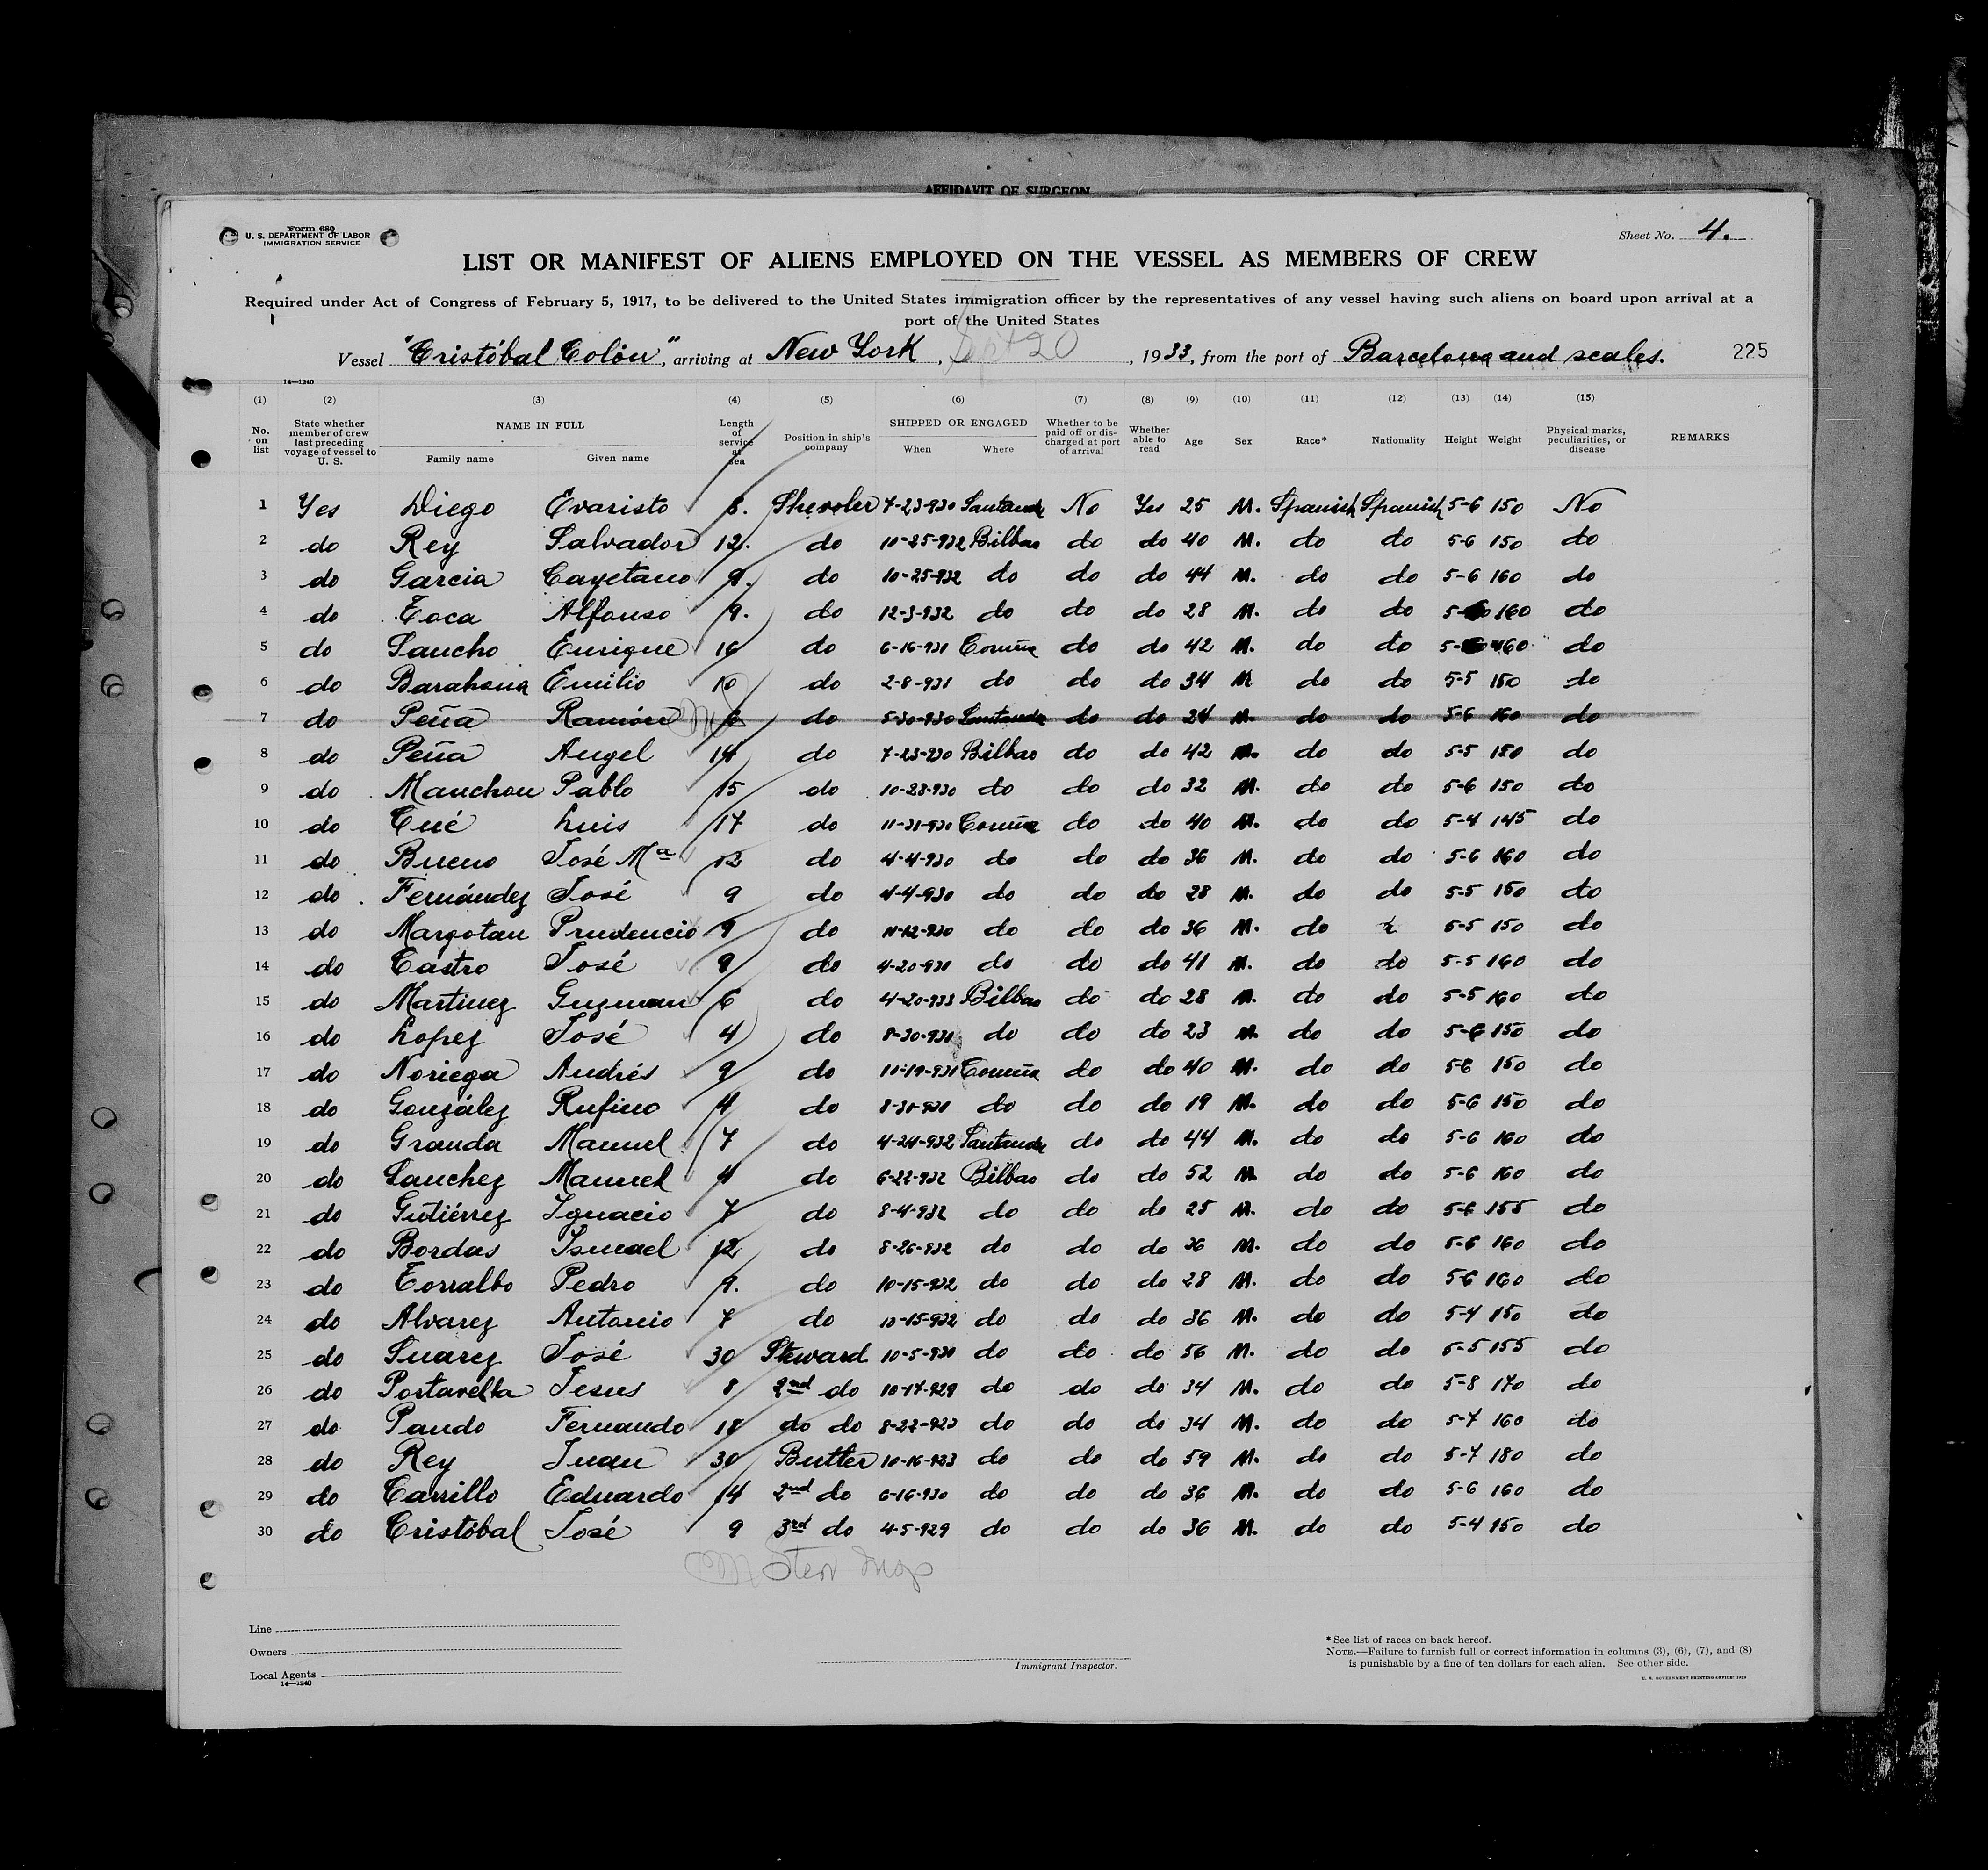 AFFIDAVIT OF SURGEON
Form 680
U. S. DEPARTMENT OF LABOR
IMMIGRATION SERVICE
Sheet No. 4.
LIST OR MANIFEST OF ALIENS EMPLOYED ON THE VESSEL AS MEMBERS OF CREW
Required under Act of Congress of February 5, 1917, to be delivered to the United States immigration officer by the representatives of any vessel having such aliens on board upon arrival at a
port of the United States
Vessel "Cristóbal Colón", arriving at New York, Sept 20, 1933, from the port of Barcelona and scales. 225
14—1240
(1) (2) (3) (4) (5) (6) (7) (8) (9) (10) (11) (12) (13) (14) (15)
No. on list State whether member of crew last preceding voyage of vessel to U. S. NAME IN FULL Family name Given name Length of service at sea Position in ship's company SHIPPED OR ENGAGED When Where Whether to be paid off or discharged at port of arrival Whether able to read Age Sex Race* Nationality Height Weight Physical marks, peculiarities, or disease REMARKS
1 Yes Diego Evaristo 8. 7-23-930 Santander No Yes 25 M. Spanish Spanish 5-6 150 No
2 do Rey Salvador 12. do 10-25-932 Bilbao do do 40 M. do do 5-6 150 do
3 do Garcia Cayetano 9. do 10-25-932 do do do 44 M. do do 5-6 160 do
4 do Toca Alfonso 9. do 12-3-932 do do do 28 M. do do 160 do
5 do Sancho Enrique 16 do 6-16-931 Coruña do do 42 M. do do 160 do
6 do Barahona Emilio 10 do 2-8-931 do do do 34 M do do 5-5 150 do
7 do Peña Ramón 6 do 5-30-930 Santander do do 24 M. do do 5-6 160 do
8 do Peña Angel 14 do 7-23-930 Bilbao do do 42 M. do do 5-5 150 do
9 do Manchon Pablo 15 do 10-28-930 do do do 32 M. do do 5-6 150 do
10 do Cué Luis 17 do 11-31-930 Coruña do do 40 M. do do 5-4 145 do
11 do Bueno José Mª 12 do 4-4-930 do do do 36 M. do do 5-6 160 do
12 do Fernández José 9 do 4-4-930 do do do 28 M. do do 5-5 150 do
13 do Margotan Prudencio 9 do 11-12-930 do do do 36 M. do 5-5 150 do
14 do Castro José 9 do 4-20-931 do do do 41 M. do do 5-5 160 do
15 do Martinez Guzman 6 do 4-20-933 Bilbao do do 28 M. do do 5-5 160 do
16 do Lopez José 4 do 8-30-931 do do do 23 M. do do 5-6 150 do
17 do Noriega Andrés 9 do 10-19-931 Coruña do do 40 M. do do 5-6 150 do
18 do González Rufino 4 do 8-31-931 do do do 19 M. do do 5-6 150 do
19 do Granda Manuel 7 do 4-24-932 Santander do do 44 M. do do 5-6 160 do
20 do Sanchez Manuel 4 do 6-22-932 Bilbao do do 52 M. do do 5-6 160 do
21 do Gutiérrez Ignacio 7 do 8-4-932 do do do 25 M. do do 5-6 155 do
22 do Bordas Ismael 12 do 8-26-932 do do do 36 M. do do 5-6 160 do
23 do Torralbo Pedro 9. do 10-15-932 do do do 28 M. do do 5-6 160 do
24 do Alvarez Antonio 7 do 10-15-932 do do do 36 M. do do 5-4 150 do
25 do Suarez José 30 Steward 10-5-930 do do do 56 M. do do 5-5 155 do
26 do Portavella Jesus 8 2nd do 10-17-929 do do do 34 M. do do 5-8 170 do
27 do Pando Fernando 18 do do 8-22-923 do do do 34 M. do do 5-7 160 do
28 do Rey Juan 30 Butler 10-16-923 do do do 59 M. do do 5-7 180 do
29 do Carrillo Eduardo 14 2nd do 6-16-930 do do do 36 M. do do 5-6 160 do
30 do Cristóbal José 9 3rd do 4-5-929 do do do 36 M. do do 5-4 150 do
Line
Owners
Local Agents
14—1240
Immigrant Inspector.
*See list of races on back hereof.
NOTE.—Failure to furnish full or correct information in columns (3), (6), (7), and (8)
is punishable by a fine of ten dollars for each alien. See other side.
U. S. GOVERNMENT PRINTING OFFICE: 1929